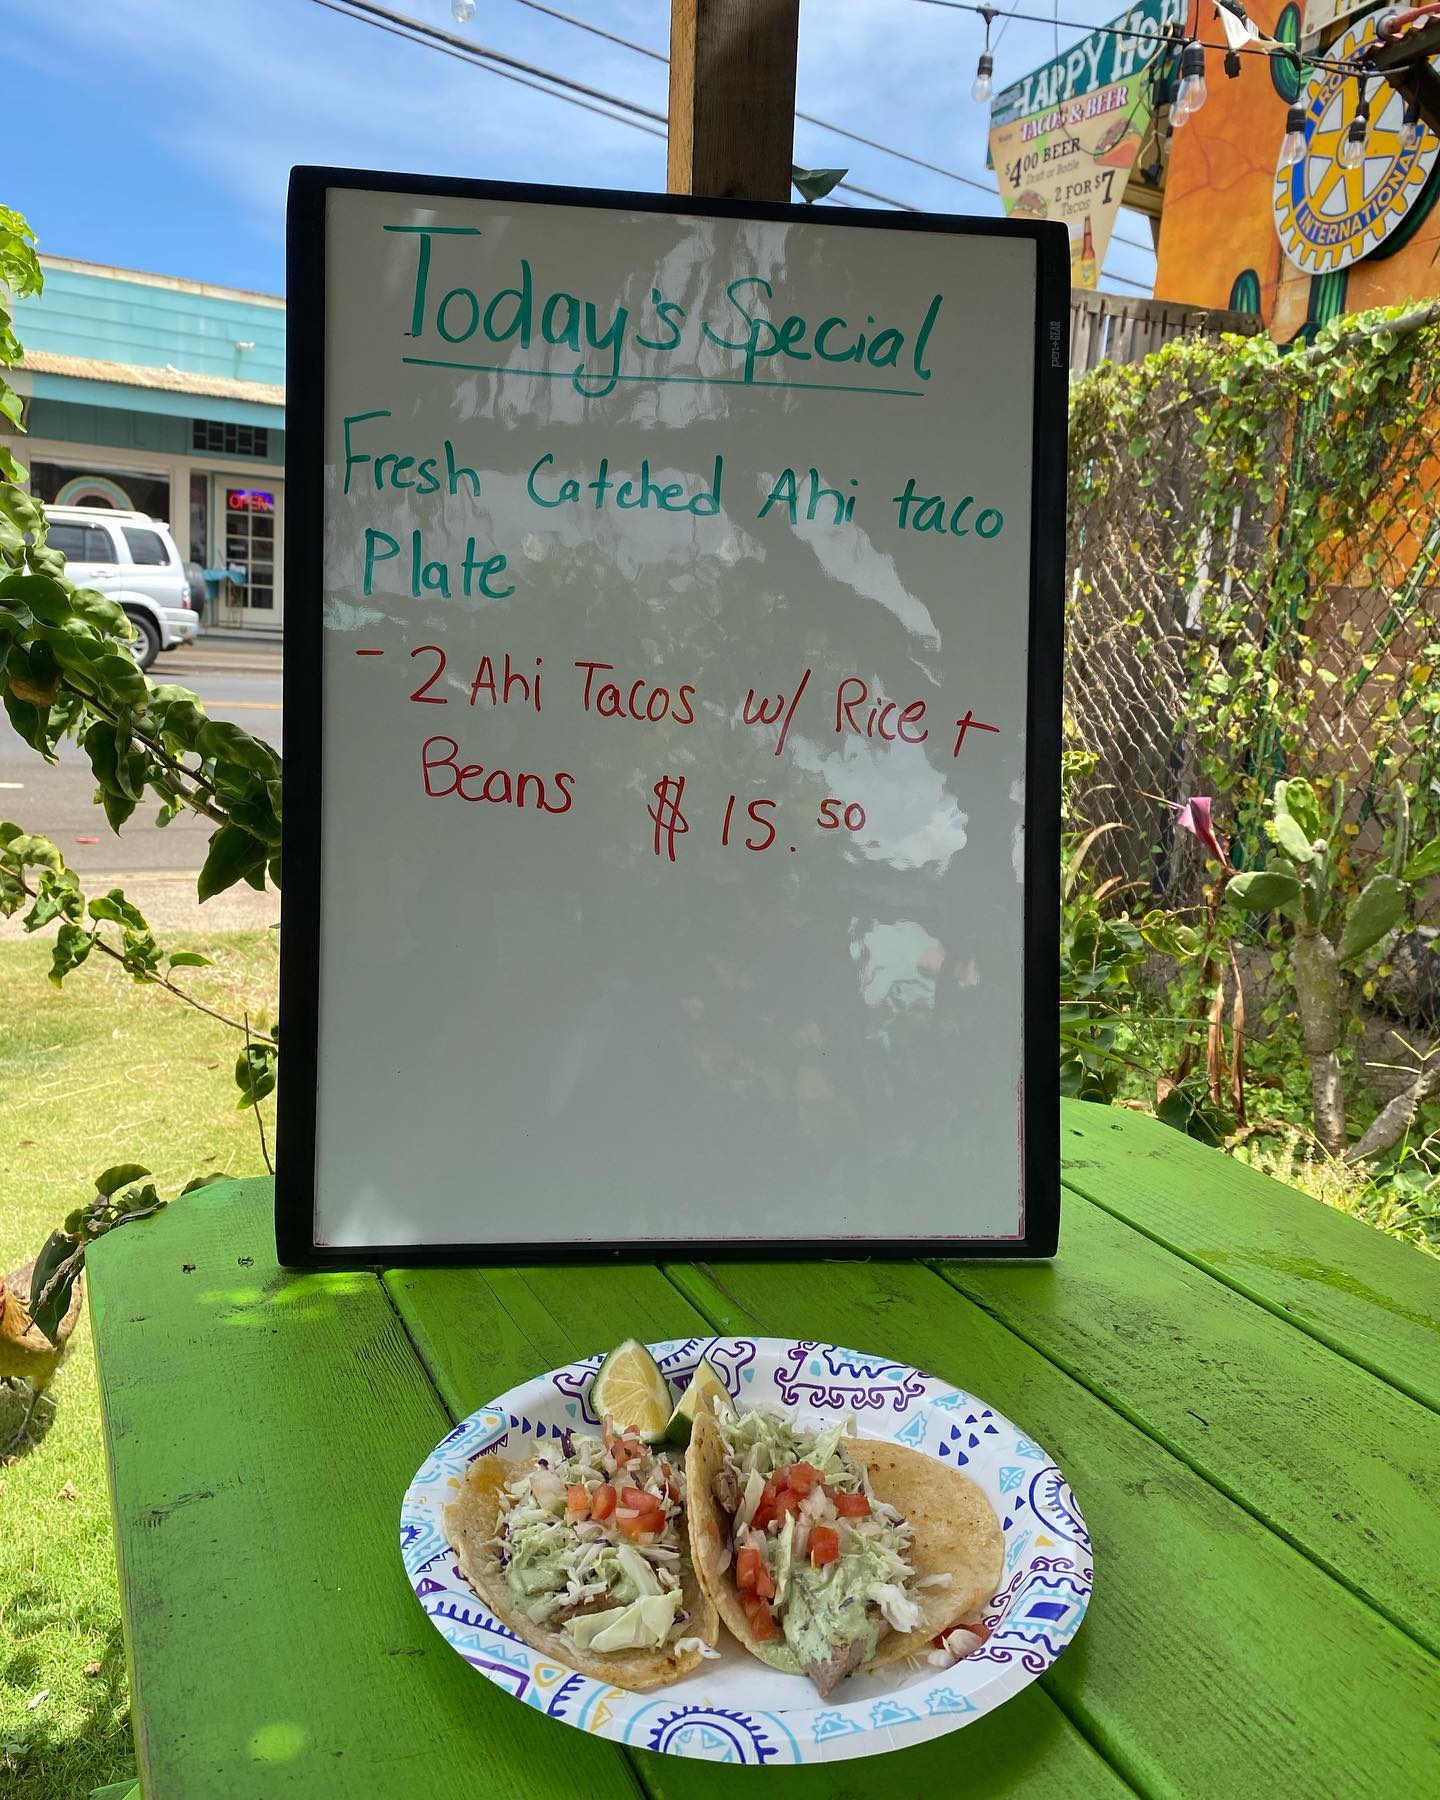 Today's Special
Fresh Catched Ahi taco
Plate
- 2 Ahi Tacos w/ Rice +
Beans $ 15.50
HAPPY
TACOS & BEER
$4.00 BEER
Draft or Bottle
2 FOR $7
Tacos
INTERNATIONAL
OPEN
pen+GEAR